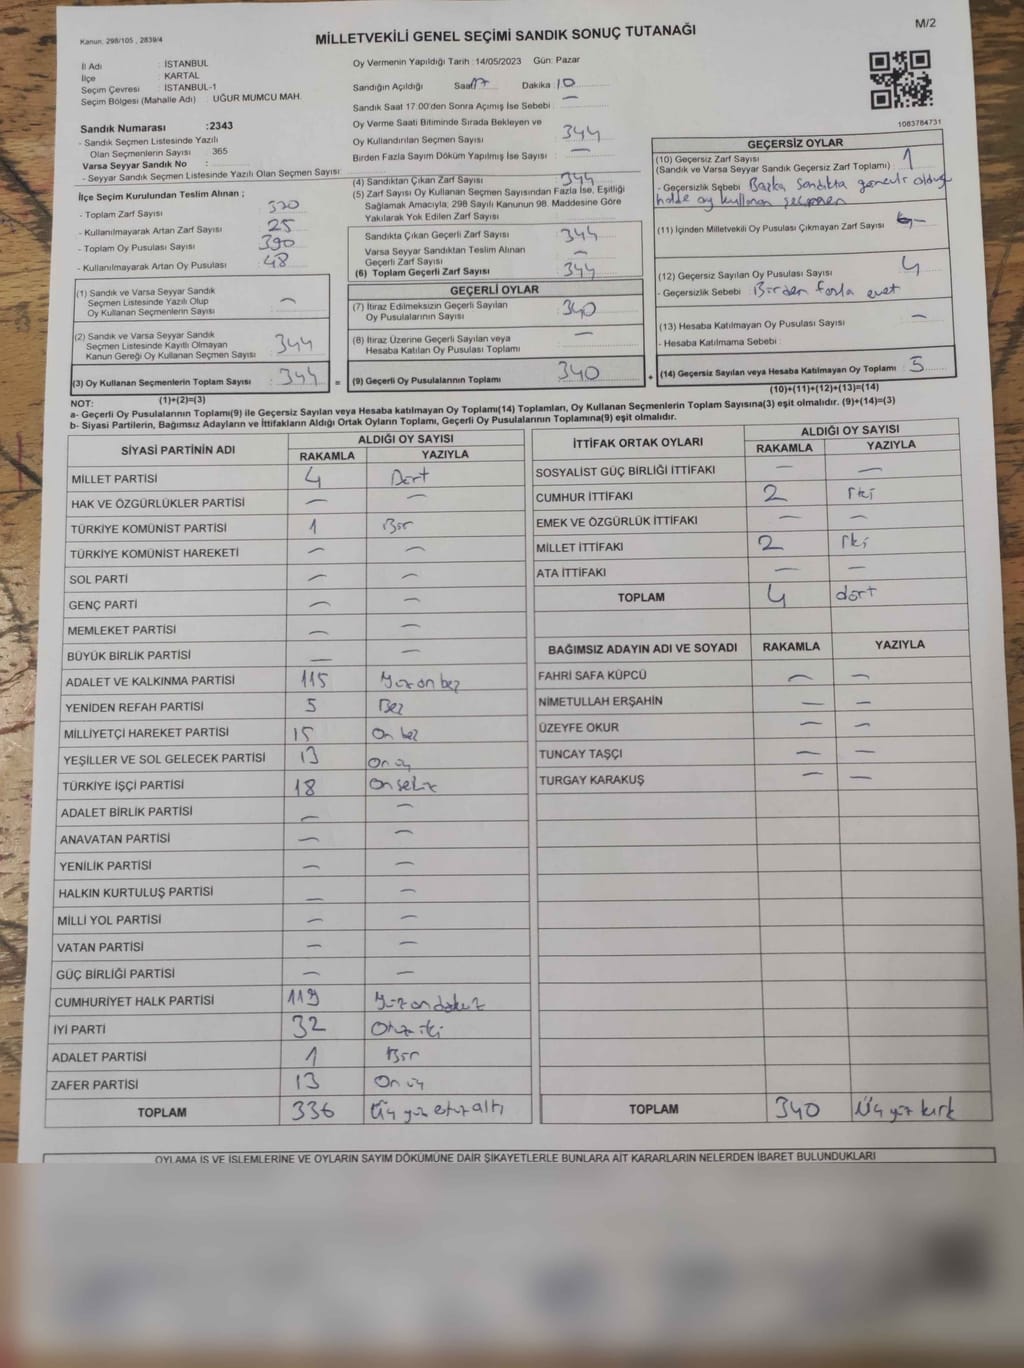 Kanun: 298/105 , 2839/4
MİLLETVEKİLİ GENEL SEÇİMİ SANDIK SONUÇ TUTANAĞI
M/2
İl Adı : İSTANBUL
İlçe : KARTAL
Seçim Çevresi : İSTANBUL-1
Seçim Bölgesi (Mahalle Adı) : UĞUR MUMCU MAH.
Sandık Numarası :2343
- Sandık Seçmen Listesinde Yazılı
Olan Seçmenlerin Sayısı : 365
Varsa Seyyar Sandık No :
- Seyyar Sandık Seçmen Listesinde Yazılı Olan Seçmen Sayısı :
Oy Vermenin Yapıldığı Tarih :14/05/2023 Gün: Pazar
Sandığın Açıldığı Saat 17 Dakika 10
Sandık Saat 17:00'den Sonra Açılmış İse Sebebi : —
Oy Verme Saati Bitiminde Sırada Bekleyen ve
Oy Kullandırılan Seçmen Sayısı : 344
Birden Fazla Sayım Döküm Yapılmış İse Sayısı : —
1083784731
İlçe Seçim Kurulundan Teslim Alınan ;
- Toplam Zarf Sayısı : 370
- Kullanılmayarak Artan Zarf Sayısı : 25
- Toplam Oy Pusulası Sayısı : 390
- Kullanılmayarak Artan Oy Pusulası : 48
(1) Sandık ve Varsa Seyyar Sandık
Seçmen Listesinde Yazılı Olup
Oy Kullanan Seçmenlerin Sayısı : —
(2) Sandık ve Varsa Seyyar Sandık
Seçmen Listesinde Kayıtlı Olmayan
Kanun Gereği Oy Kullanan Seçmen Sayısı : 344
(3) Oy Kullanan Seçmenlerin Toplam Sayısı : 344 =
(1)+(2)=(3)
(4) Sandıktan Çıkan Zarf Sayısı : 344
(5) Zarf Sayısı Oy Kullanan Seçmen Sayısından Fazla İse, Eşitliği
Sağlamak Amacıyla, 298 Sayılı Kanunun 98. Maddesine Göre
Yakılarak Yok Edilen Zarf Sayısı :
Sandıkta Çıkan Geçerli Zarf Sayısı : 344
Varsa Seyyar Sandıktan Teslim Alınan
Geçerli Zarf Sayısı : —
(6) Toplam Geçerli Zarf Sayısı : 344
GEÇERLİ OYLAR
(7) İtiraz Edilmeksizin Geçerli Sayılan
Oy Pusulalarının Sayısı : 340
(8) İtiraz Üzerine Geçerli Sayılan veya
Hesaba Katılan Oy Pusulası Toplamı : —
(9) Geçerli Oy Pusulalarının Toplamı : 340 +
GEÇERSİZ OYLAR
(10) Geçersiz Zarf Sayısı
(Sandık ve Varsa Seyyar Sandık Geçersiz Zarf Toplamı) : 1
- Geçersizlik Sebebi : Başka Sandıkta görevli olduğu
halde oy kullanan seçmen
(11) İçinden Milletvekili Oy Pusulası Çıkmayan Zarf Sayısı : —
(12) Geçersiz Sayılan Oy Pusulası Sayısı : 4
- Geçersizlik Sebebi : Birden fazla evet
(13) Hesaba Katılmayan Oy Pusulası Sayısı : —
- Hesaba Katılmama Sebebi :
(14) Geçersiz Sayılan veya Hesaba Katılmayan Oy Toplamı : 5
(10)+(11)+(12)+(13)=(14)
NOT:
a- Geçerli Oy Pusulalarının Toplamı(9) ile Geçersiz Sayılan veya Hesaba katılmayan Oy Toplamı(14) Toplamları, Oy Kullanan Seçmenlerin Toplam Sayısına(3) eşit olmalıdır. (9)+(14)=(3)
b- Siyasi Partilerin, Bağımsız Adayların ve İttifakların Aldığı Ortak Oyların Toplamı, Geçerli Oy Pusulalarının Toplamına(9) eşit olmalıdır.
SİYASİ PARTİNİN ADI ALDIĞI OY SAYISI
RAKAMLA YAZIYLA
MİLLET PARTİSİ 4 Dört
HAK VE ÖZGÜRLÜKLER PARTİSİ — —
TÜRKİYE KOMÜNİST PARTİSİ 1 Bir
TÜRKİYE KOMÜNİST HAREKETİ — —
SOL PARTİ — —
GENÇ PARTİ — —
MEMLEKET PARTİSİ — —
BÜYÜK BİRLİK PARTİSİ — —
ADALET VE KALKINMA PARTİSİ 115 Yüz on beş
YENİDEN REFAH PARTİSİ 5 Beş
MİLLİYETÇİ HAREKET PARTİSİ 15 On beş
YEŞİLLER VE SOL GELECEK PARTİSİ 13 On üç
TÜRKİYE İŞÇİ PARTİSİ 18 On sekiz
ADALET BİRLİK PARTİSİ — —
ANAVATAN PARTİSİ — —
YENİLİK PARTİSİ — —
HALKIN KURTULUŞ PARTİSİ — —
MİLLİ YOL PARTİSİ — —
VATAN PARTİSİ — —
GÜÇ BİRLİĞİ PARTİSİ — —
CUMHURİYET HALK PARTİSİ 119 Yüz on dokuz
İYİ PARTİ 32 Otuz iki
ADALET PARTİSİ 1 Bir
ZAFER PARTİSİ 13 On üç
TOPLAM 336 Üç yüz otuz altı
İTTİFAK ORTAK OYLARI ALDIĞI OY SAYISI
RAKAMLA YAZIYLA
SOSYALİST GÜÇ BİRLİĞİ İTTİFAKI — —
CUMHUR İTTİFAKI 2 İki
EMEK VE ÖZGÜRLÜK İTTİFAKI — —
MİLLET İTTİFAKI 2 İki
ATA İTTİFAKI — —
TOPLAM 4 dört
BAĞIMSIZ ADAYIN ADI VE SOYADI RAKAMLA YAZIYLA
FAHRİ SAFA KÜPCÜ — —
NİMETULLAH ERŞAHİN — —
ÜZEYFE OKUR — —
TUNCAY TAŞÇI — —
TURGAY KARAKUŞ — —
TOPLAM 340 Üç yüz kırk
OYLAMA İŞ VE İŞLEMLERİNE VE OYLARIN SAYIM DÖKÜMÜNE DAİR ŞİKAYETLERLE BUNLARA AİT KARARLARIN NELERDEN İBARET BULUNDUKLARI